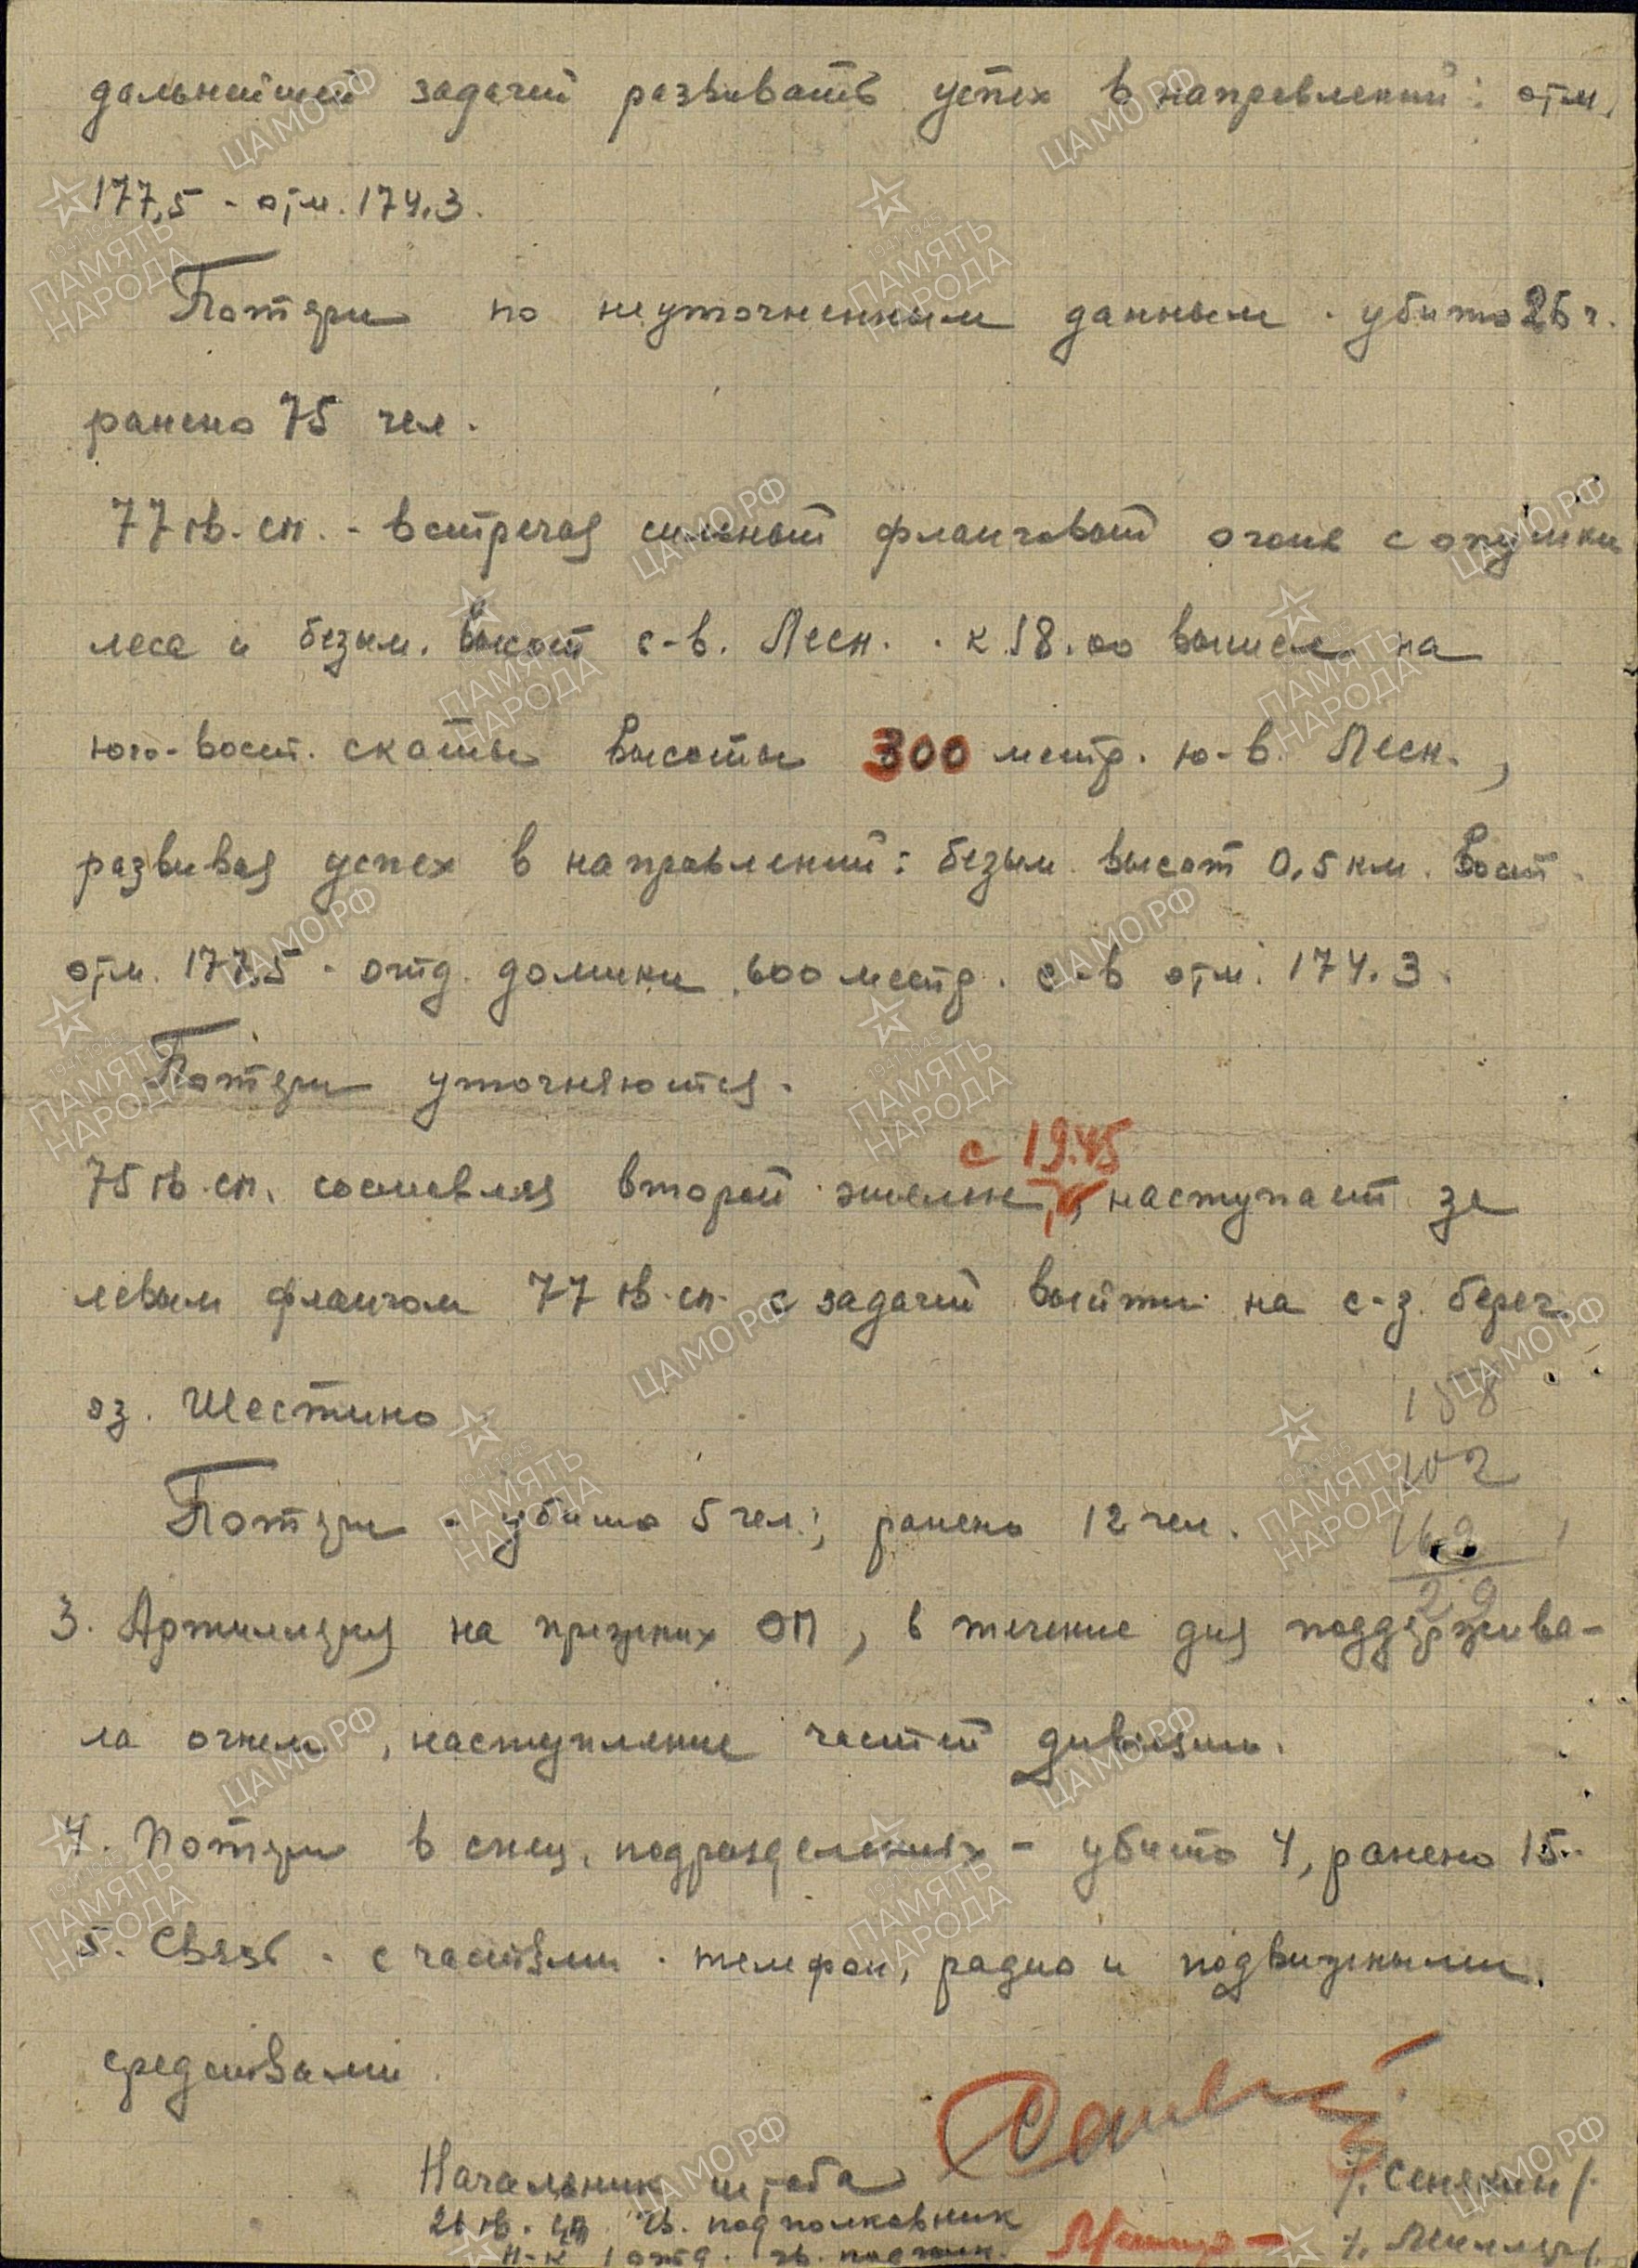 дальнейшей задачей развивать успех в направлении: отм.
177,5 - отм. 174.3.
Потери по неуточненным данным - убито 26 ч.
ранено 75 чел.
77 гв. сп. - встречая сильный фланговый огонь с опушки
леса и безым. высот с-в. Лесн. к 18.00 вышел на
юго-вост. скаты высоты 300 метр. ю-в. Лесн.,
развивая успех в направлении: безым. высот 0,5 км. вост.
отм. 177,5 - отд. домики 600 метр. с-в отм. 174.3.
Потери уточняются.
с 19.45
75 гв. сп. составляя второй эшелон, наступает за
левым флангом 77 гв. сп. с задачей выйти на с-з. берег
оз. Шестино
158
102
Потери - убито 5 чел.; ранено 12 чел.
162
29
3. Артиллерия на прежних ОП, в течение дня поддержива-
ла огнем, наступление частей дивизии.
4. Потери в спец. подразделениях - убито 4, ранено 15.
5. Связь - с частями - телефон, радио и подвижными
средствами.
Начальник штаба /Сенякин/.
гв. сд гв. подполковник
Н-к 1 отд. гв.
ЦАМО.РФ
1941-1945
ПАМЯТЬ
НАРОДА